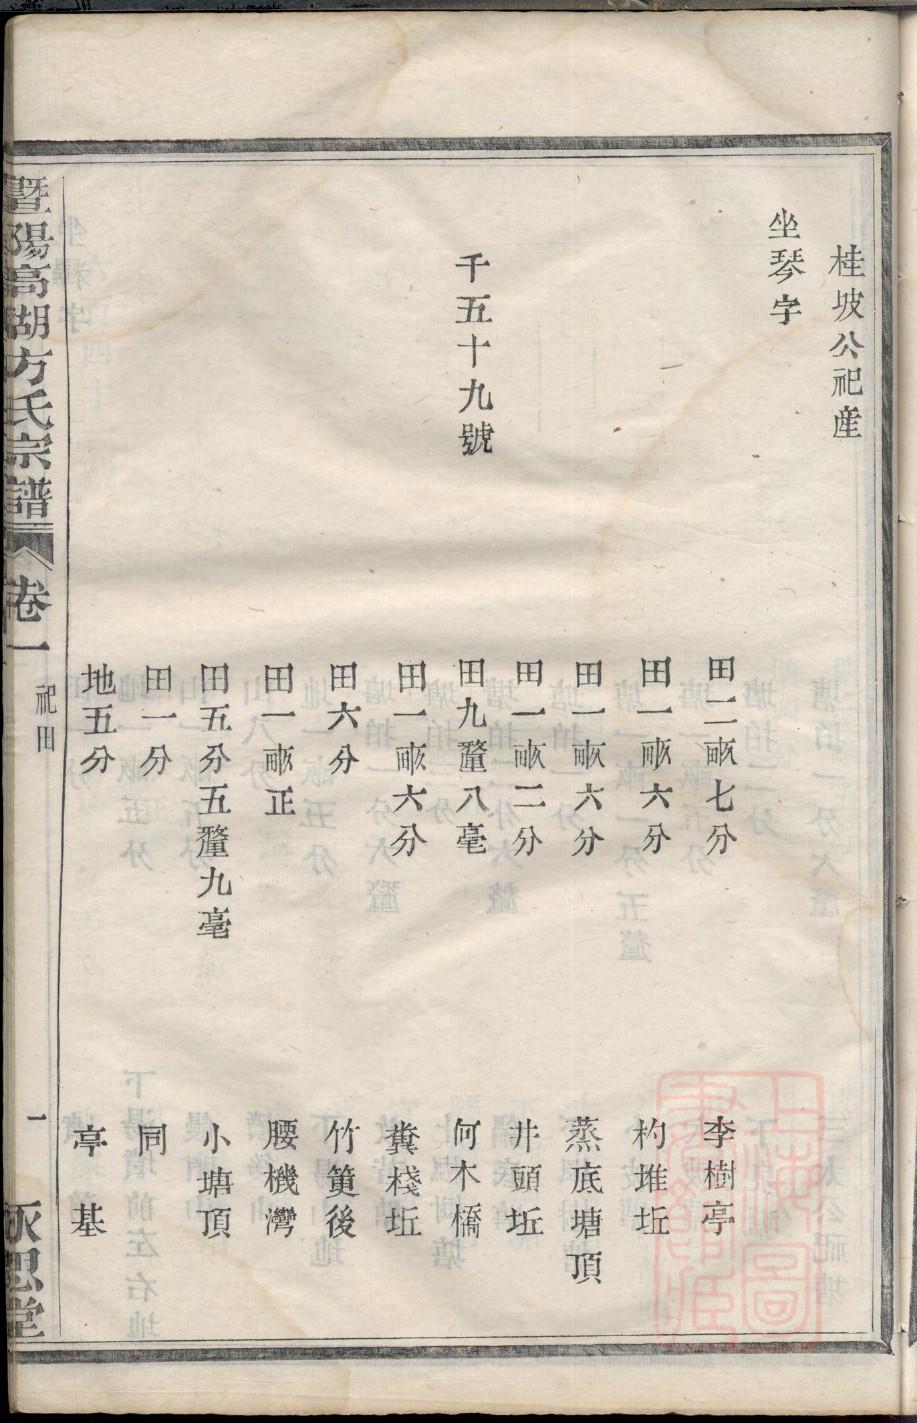 桂坡公祀產
坐琴字
田二畝七分 李樹亭
田一畝六分 杓堆坵
田一畝六分 蒸底塘頂
田一畝二分 井頭坵
千五十九號 田九釐八毫 何木橋
田一畝六分 糞棧坵
田六分 竹篢後
田一畝正 腰機灣
田五分五釐九毫 小塘頂
田一分 同
地五分 亭基
暨陽高湖方氏宗譜 卷一 祀田 一 永思堂